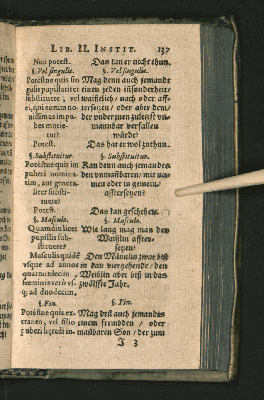 LIB. II. INSTIT. 137
Non potest. Das kan er nicht thun.
§. Vel singulis. §. Vel singulis.
Potéstne quis sin- Mag denn auch jemandt
gulis pupillariter einen jeden insonderheit/
substituere, vel waißlich/ nach oder aff-
ei, qui eorum no- tersetzen/ oder aber dem/
uissimus impu- der unter jnen zuletzt un-
bes morie- mannbar verfallen
tur? würde?
Potest. Das hat er wol zuthun.
§. Substituitur. §. Substituitur.
Potéstne quis im- Kan denn auch jemandes
puberi nomina- den unmannbaren/ mit na-
tim, aut genera- men oder in gemein/
liter substi- affterserzen?
tuere?
Potest. Das kan geschehen.
§. Masculo. §. Masculo.
Quamdiu licet Wie lang mag man den
pupillis sub- Waißlin affter-
stituere? setzen?
Masculis quidē Den Mánnlin zwar biß
vsque ad annos in das vierzehende/ den
quatuordecim, Weiblin aber biß in das
fœminis verò vs- zwölffte Jahr.
q; ad duodecim.
§. Fin. §. Fin.
Potéstne quis ex- Mag deñ auch jemandts
traneo, vel filio einem frembden/ oder
puberi heredi in- mañbaren Son/ der zum
J 3